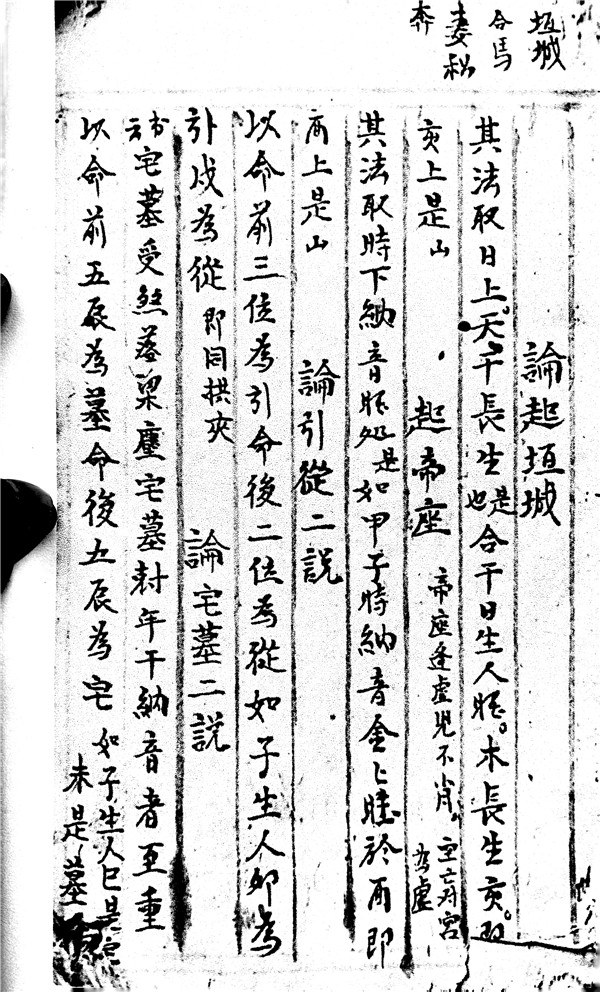 垣城
合馬
妻秘
奔
論起垣城
其法取日上天干長生是也合干日生人旺木長生亥即
亥上是山 起帝座 帝座逢虛兒不肖空亡對宮為虛
其法取時下納音旺処是如甲子時納音金金旺於酉即
酉上是山 論引從二説
以命前三位為引命後二位為從如子生人卯為
引戌為從即同拱夾 論宅墓二説
書云宅墓受煞落梁塵宅墓尅年干納音者至重
以命前五辰為墓命後五辰為宅如子生人巳是宅未是墓